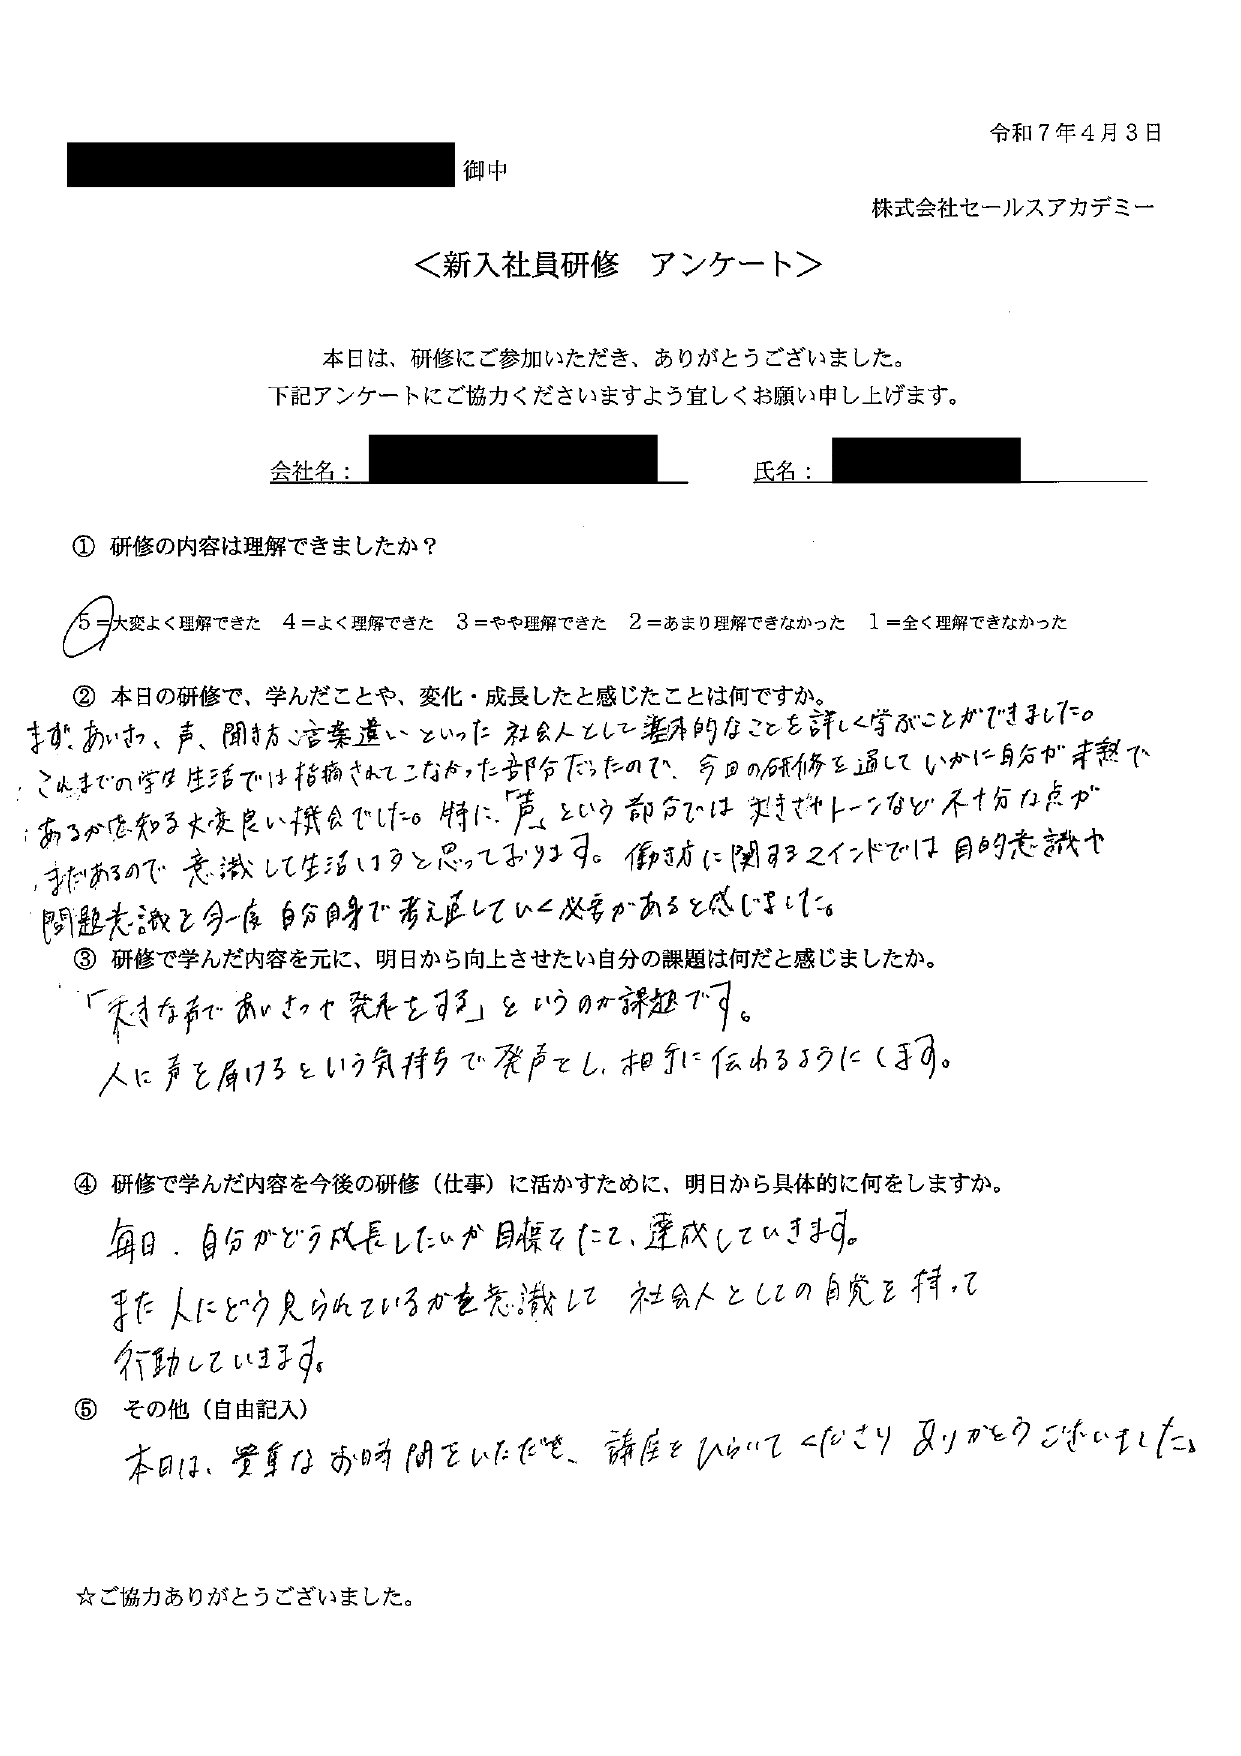 令和７年４月３日
御中
株式会社セールスアカデミー
＜新入社員研修　アンケート＞
本日は、研修にご参加いただき、ありがとうございました。
下記アンケートにご協力くださいますよう宜しくお願い申し上げます。
会社名：　氏名：
① 研修の内容は理解できましたか？
５＝大変よく理解できた　４＝よく理解できた　３＝やや理解できた　２＝あまり理解できなかった　１＝全く理解できなかった
② 本日の研修で、学んだことや、変化・成長したと感じたことは何ですか。
まず、あいさつ、声、聞き方、言葉遣いといった社会人として基本的なことを詳しく学ぶことができました。
これまでの学生生活では指摘されてこなかった部分だったので、今回の研修を通していかに自分が未熟で
あるかを知る大変良い機会でした。特に、「声」という部分では大きさやトーンなど不十分な点が
まだあるので意識して生活しようと思っております。働き方に関するマインドでは目的意識や
問題意識を今一度自分自身で考え直していく必要があると感じました。
③ 研修で学んだ内容を元に、明日から向上させたい自分の課題は何だと感じましたか。
「大きな声であいさつや発表をする」というのが課題です。
人に声を届けるという気持ちで発声をし、相手に伝わるようにします。
④ 研修で学んだ内容を今後の研修（仕事）に活かすために、明日から具体的に何をしますか。
毎日、自分がどう成長したいか目標をたて、達成していきます。
また人にどう見られているかを意識して社会人としての自覚を持って
行動していきます。
⑤　その他（自由記入）
本日は、貴重なお時間をいただき、講座をひらいてくださりありがとうございました。
☆ご協力ありがとうございました。